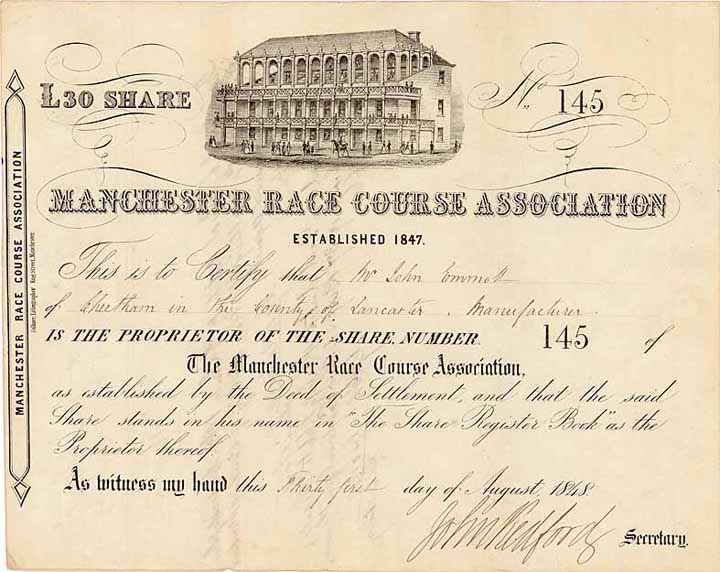 L30 SHARE
No. 145
MANCHESTER RACE COURSE ASSOCIATION
ESTABLISHED 1847.
This is to Certify that Mr John Emmott
of Cheetham in the County of Lancaster, Manufacturer
IS THE PROPRIETOR OF THE SHARE, NUMBER 145 of
The Manchester Race Course Association,
as established by the Deed of Settlement, and that the said
Share stands in his name in "The Share Register Book" as the
Proprietor thereof
As witness my hand this Thirty first day of August, 1848.
John Redford Secretary.
MANCHESTER RACE COURSE ASSOCIATION
Lithographer King Street, Manchester